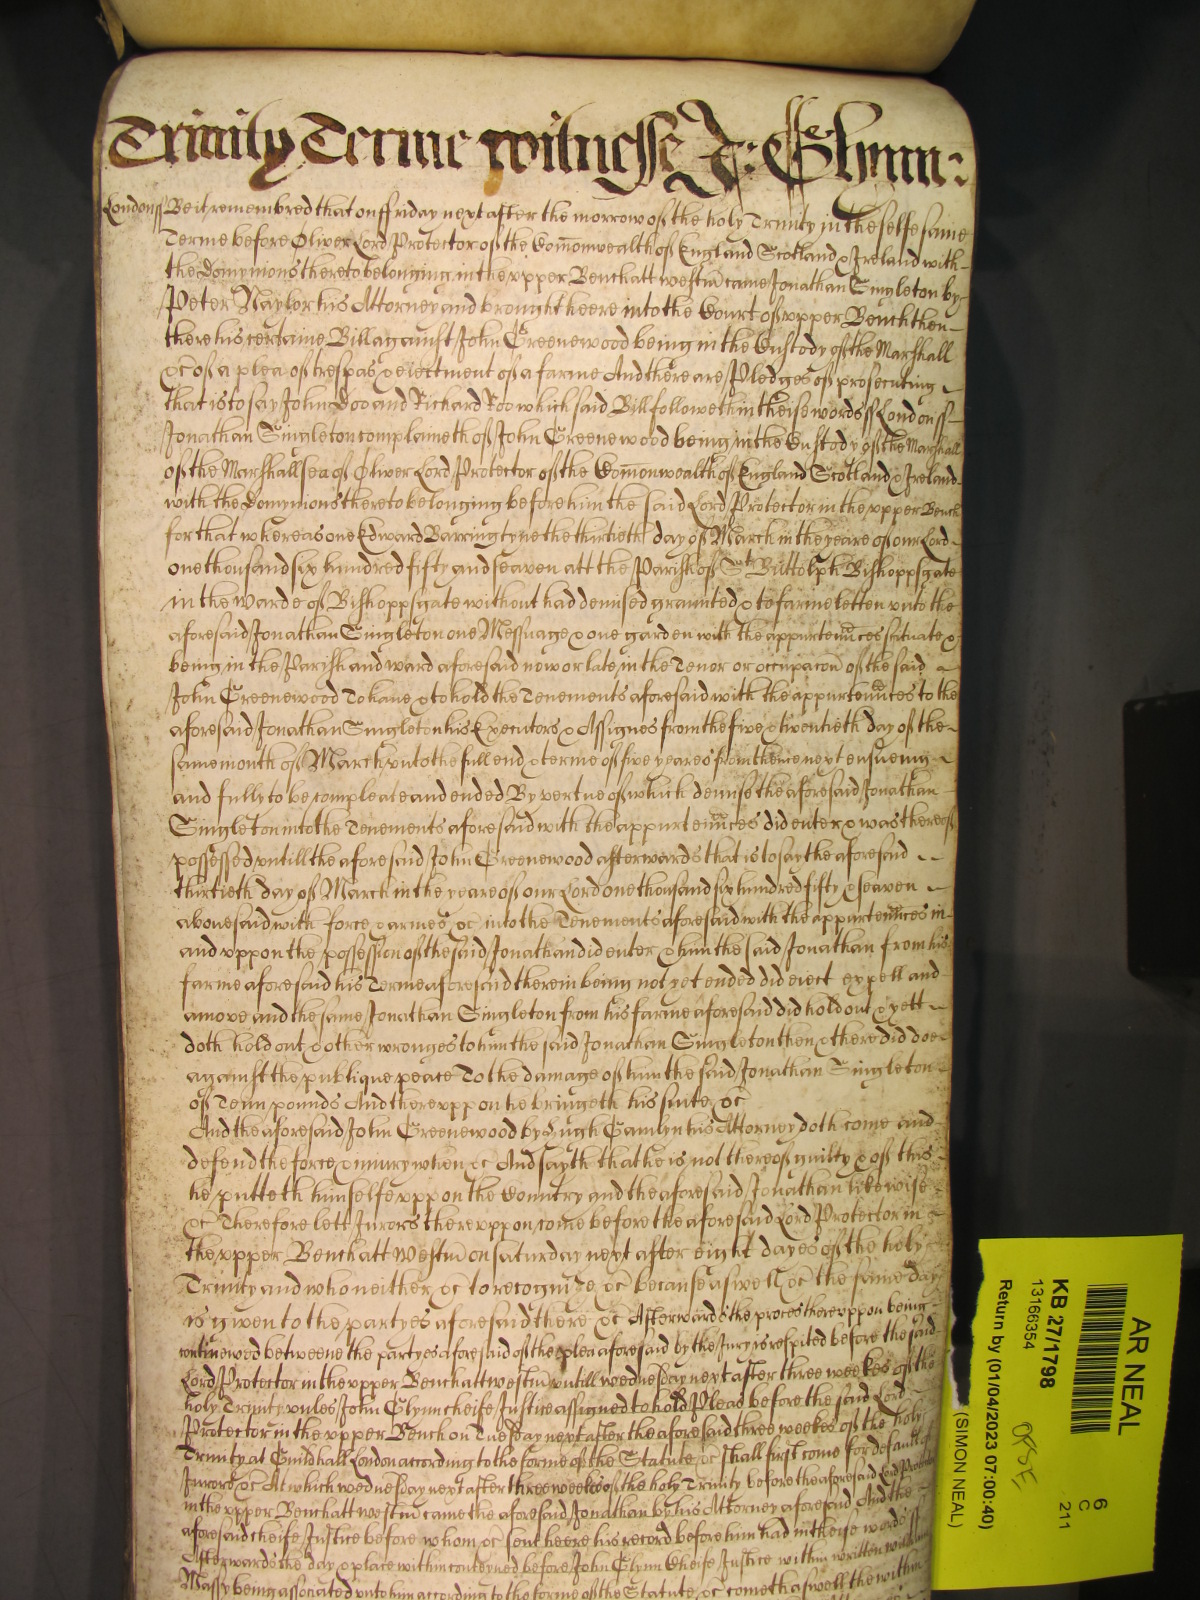 Trinity Terme witnesse J: Glynn:
London ss Be it remembred that on ffriday next after the morrow of the holy Trinity in the selfe same
Terme before Oliver Lord Protector of the Com̄onwealth of England Scotland & Ireland with
the Domynions thereto belonging in the upper Bench att Westm̄ came Jonathan Singleton by
Peter Naylor his Attorney and brought heere into the Court of upper Bench then
there his certaine Bill against John Greenewood being in the Custody of the Marshall
&c of a plea of trespas & eiectment of a farme And there are Pledges of prosecuting
that is to say John Doo and Richard Roo which said Bill followeth in theise words ss London ss
Jonathan Singleton complaineth of John Greenewood being in the Custody of the Marshall
of the Marshallsea of Oliver Lord Protector of the Com̄onwealth of England Scotland & Ireland
with the Domynions thereto belonging before him the said Lord Protector in the upper Bench
for that whereas one Edward Barrington the thirtieth day of March in the yeare of our Lord
one thousand six hundred fifty and seaven att the Parish of St Buttolph Bishoppsgate
in the Warde of Bishoppsgate without had demised graunted & to farme letten unto the
aforesaid Jonathan Singleton one Messuage & one garden with the appurten̄nces scituate &
being in the Parish and ward aforesaid now or late in the Tenor or occupacōn of the said
John Greenewood To have & to hold the Tenements aforesaid with the appurten̄nces to the
aforesaid Jonathan Singleton his Executors & Assignes from the five & twentieth day of the
same month of March unto the full end & terme of five yeares from thence next ensueing
and fully to be compleate and ended By vertue of which demise the aforesaid Jonathan
Singleton into the Tenements aforesaid with the appurten̄nces did enter & was thereof
possessed untill the aforesaid John Greenewood afterwards that is to say the aforesaid
thirtieth day of March in the yeare of our Lord one thousand six hundred fifty & seaven
abovesaid with force & armes &c into the Tenements aforesaid with the appurten̄nces in
and uppon the possession of the said Jonathan did enter & him the said Jonathan from his
farme aforesaid his Terme aforesaid therein being not yet ended did eiect expell and
amove and the same Jonathan Singleton from his farme aforesaid did hold out & yett
doth hold out & other wronges to him the said Jonathan Singleton then & there did doe
against the publique peace To the damage of him the said Jonathan Singleton
of Tenn pounds And thereuppon he bringeth his suite &c
And the aforesaid John Greenewood by Hugh Camlyn his Attorney doth come and
defend the force & iniury when &c And sayth that he is not thereof guilty & of this
he putteth himselfe uppon the Country and the aforesaid Jonathan likewise
&c Therefore lett Jurors thereuppon come before the aforesaid Lord Protector in
the upper Bench att Westm̄ on Saturday next after eight dayes of the holy
Trinity and who neither &c to recognize &c because aswell &c the same day
is given to the partyes aforesaid there &c Afterwards the proces thereuppon being
continewed betweene the partyes aforesaid of the plea aforesaid by the Jury is respited before the said
Lord Protector in the upper Bench att Westm̄ untill wednesday next after three weekes of the
holy Trinity unles John Glynn cheife Justice assigned to hold Pleas before the said Lord
Protector in the upper Bench on Tuesday next after the aforesaid three weekes of the holy
Trinity at Guildhall London according to the forme of the Statute &c shall first come for default of
Jurors &c At which wednesday next after three weekes of the holy Trinity before the aforesaid Lord Protector
in the upper Bench att Westm̄ came the aforesaid Jonathan by his Attorney aforesaid And the
aforesaid cheife Justice before whom &c sent heere his record before him had in theise words ss
Afterwards the day & place within conteyned before John Glynn Cheife Justice within written
Massy being associated unto him according to the forme of the Statute &c cometh aswell the within
AR NEAL
KB 27/1798
13166354
Return by (01/04/2023 07:00:40)
(SIMON NEAL)
6
C
211